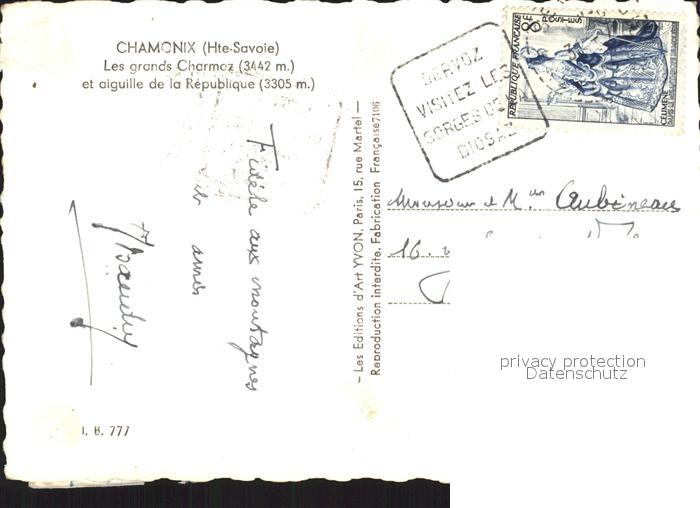 CHAMONIX (Hte-Savoie)
Les grands Charmoz (3442 m.)
et aiguille de la République (3305 m.)
Fidèle aux montagnes
amis
I. B. 777
– Les Editions d'Art YVON, Paris, 15, rue Martel –
Reproduction interdite. Fabrication Française 7106
SERVOZ
VISITEZ LES
GORGES DE LA
DIOSAZ
8F
POSTES
REPUBLIQUE FRANÇAISE
CELIMENE
Monsieur et Mme Aubineau
16.
privacy protection
Datenschutz